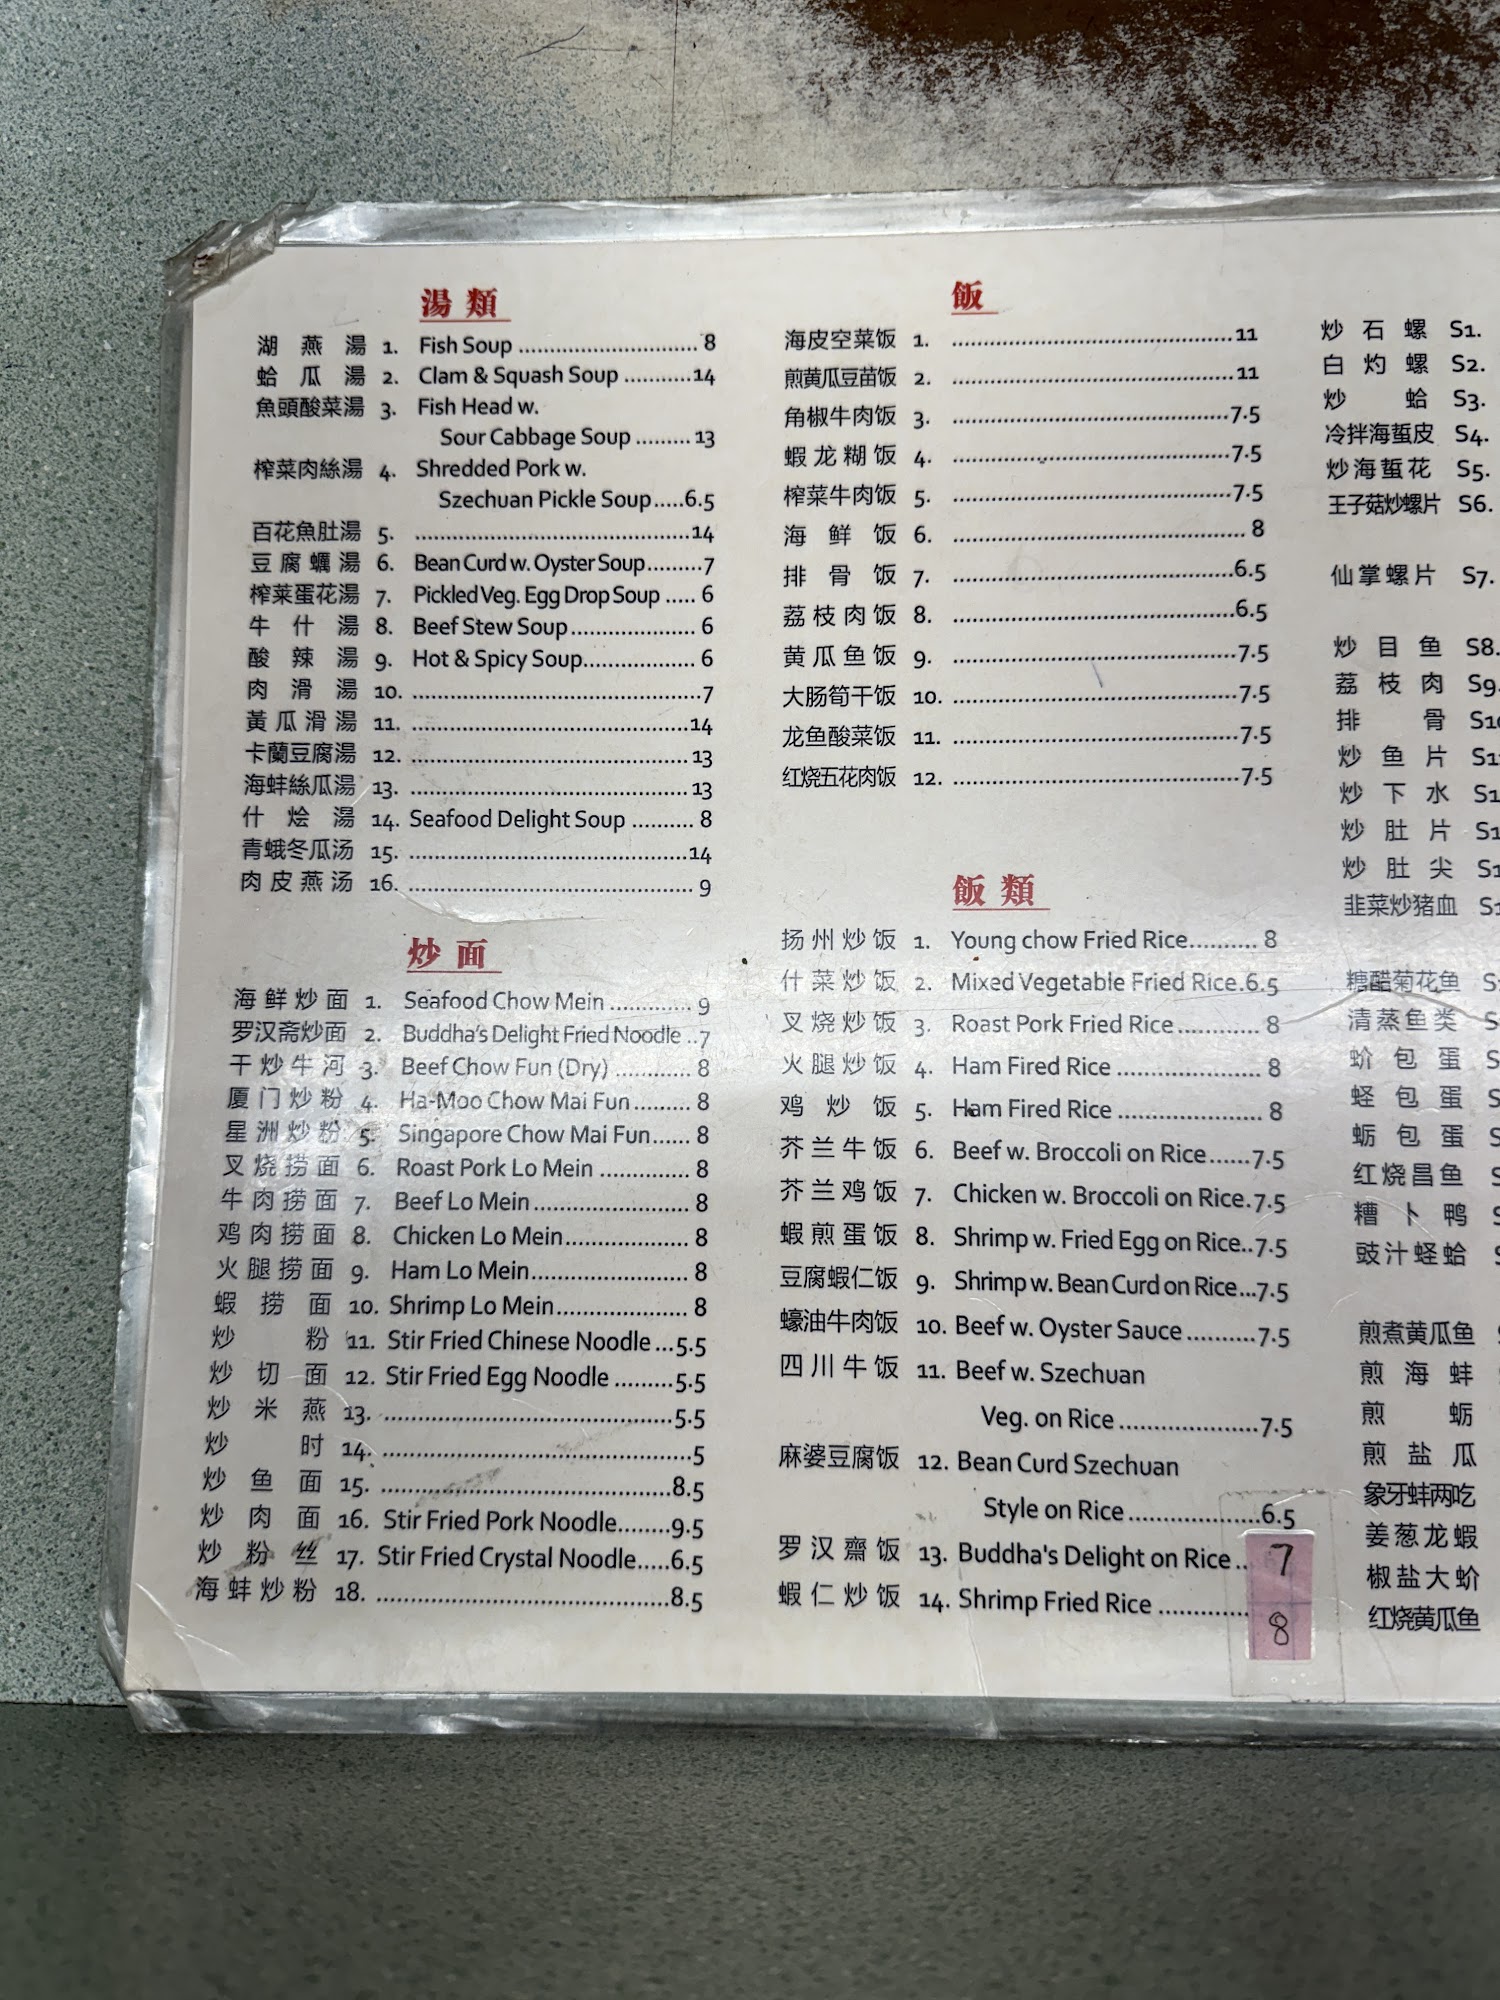 湯類
湖燕湯 1. Fish Soup 8
蛤瓜湯 2. Clam & Squash Soup 14
魚頭酸菜湯 3. Fish Head w.
Sour Cabbage Soup 13
榨菜肉絲湯 4. Shredded Pork w.
Szechuan Pickle Soup 6.5
百花魚肚湯 5. 14
豆腐蠣湯 6. Bean Curd w. Oyster Soup 7
榨菜蛋花湯 7. Pickled Veg. Egg Drop Soup 6
牛什湯 8. Beef Stew Soup 6
酸辣湯 9. Hot & Spicy Soup 6
肉滑湯 10. 7
黃瓜滑湯 11. 14
卡蘭豆腐湯 12. 13
海蚌絲瓜湯 13. 13
什烩湯 14. Seafood Delight Soup 8
青蛾冬瓜汤 15. 14
肉皮燕汤 16. 9
炒面
海鲜炒面 1. Seafood Chow Mein 9
罗汉斋炒面 2. Buddha's Delight Fried Noodle 7
干炒牛河 3. Beef Chow Fun (Dry) 8
厦门炒粉 4. Ha-Moo Chow Mai Fun 8
星洲炒粉 5. Singapore Chow Mai Fun 8
叉烧捞面 6. Roast Pork Lo Mein 8
牛肉捞面 7. Beef Lo Mein 8
鸡肉捞面 8. Chicken Lo Mein 8
火腿捞面 9. Ham Lo Mein 8
蝦捞面 10. Shrimp Lo Mein 8
炒粉 11. Stir Fried Chinese Noodle 5.5
炒切面 12. Stir Fried Egg Noodle 5.5
炒米燕 13. 5.5
炒时 14. 5
炒鱼面 15. 8.5
炒肉面 16. Stir Fried Pork Noodle 9.5
炒粉丝 17. Stir Fried Crystal Noodle 6.5
海蚌炒粉 18. 8.5
飯
海皮空菜饭 1. 11
煎黄瓜豆苗饭 2. 11
角椒牛肉饭 3. 7.5
蝦龙糊饭 4. 7.5
榨菜牛肉饭 5. 7.5
海鲜饭 6. 8
排骨饭 7. 6.5
荔枝肉饭 8. 6.5
黄瓜鱼饭 9. 7.5
大肠筍干饭 10. 7.5
龙鱼酸菜饭 11. 7.5
红烧五花肉饭 12. 7.5
飯類
扬州炒饭 1. Young chow Fried Rice 8
什菜炒饭 2. Mixed Vegetable Fried Rice 6.5
叉烧炒饭 3. Roast Pork Fried Rice 8
火腿炒饭 4. Ham Fired Rice 8
鸡炒饭 5. Ham Fired Rice 8
芥兰牛饭 6. Beef w. Broccoli on Rice 7.5
芥兰鸡饭 7. Chicken w. Broccoli on Rice 7.5
蝦煎蛋饭 8. Shrimp w. Fried Egg on Rice 7.5
豆腐蝦仁饭 9. Shrimp w. Bean Curd on Rice 7.5
蠔油牛肉饭 10. Beef w. Oyster Sauce 7.5
四川牛饭 11. Beef w. Szechuan
Veg. on Rice 7.5
麻婆豆腐饭 12. Bean Curd Szechuan
Style on Rice 6.5
罗汉齋饭 13. Buddha's Delight on Rice 7
蝦仁炒饭 14. Shrimp Fried Rice 8
炒石螺 S1.
白灼螺 S2.
炒蛤 S3.
冷拌海蜇皮 S4.
炒海蜇花 S5.
王子菇炒螺片 S6.
仙掌螺片 S7.
炒目鱼 S8.
荔枝肉 S9.
排骨 S10
炒鱼片 S1
炒下水 S1
炒肚片 S1
炒肚尖 S1
韭菜炒猪血 S1
糖醋菊花鱼 S
清蒸鱼类 S
蚧包蛋 S
蛏包蛋 S
蛎包蛋 S
红烧昌鱼
糟卜鸭
豉汁蛏蛤
煎煮黄瓜鱼
煎海蚌
煎蛎
煎盐瓜
象牙蚌两吃
姜葱龙蝦
椒盐大蚧
红烧黄瓜鱼